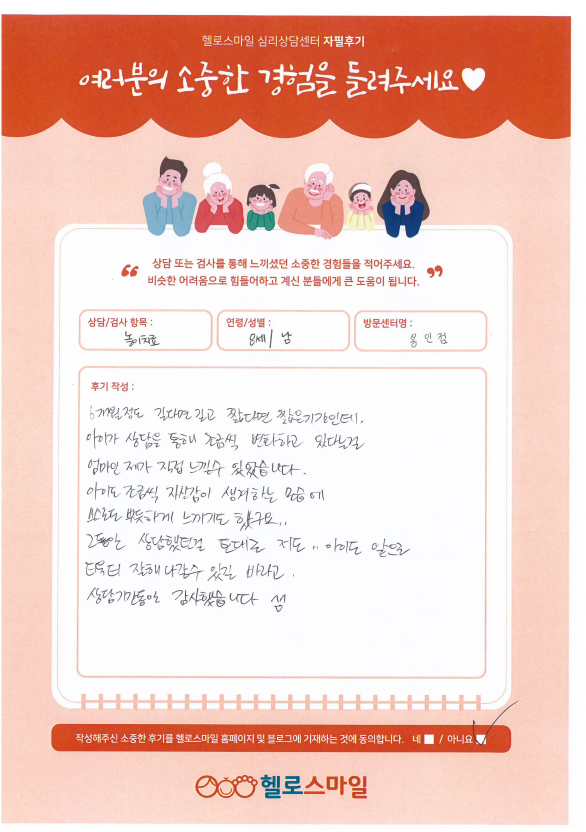 헬로스마일 심리상담센터 자필후기
여러분의 소중한 경험을 들려주세요
상담 또는 검사를 통해 느끼셨던 소중한 경험들을 적어주세요.
비슷한 어려움으로 힘들어하고 계신 분들에게 큰 도움이 됩니다.
상담/검사 항목 :
놀이치료
연령/성별 :
8세 / 남
방문센터명 :
용인점
후기 작성 :
6개월정도 길다면 길고 짧다면 짧은기간인데.
아이가 상담을 통해 조금씩 변화하고 있다는걸
엄마인 제가 직접 느낄수 있었습니다.
아이도 조금씩 자신감이 생겨하는 모습에
스스로도 뿌듯하게 느끼기도 했구요..
그동안 상담했던걸 토대로 저도.. 아이도 앞으로
더욱더 잘해나갈수 있길 바라고.
상담기간동안 감사했습니다
작성해주신 소중한 후기를 헬로스마일 홈페이지 및 블로그에 기재하는 것에 동의합니다. 네 / 아니요
헬로스마일